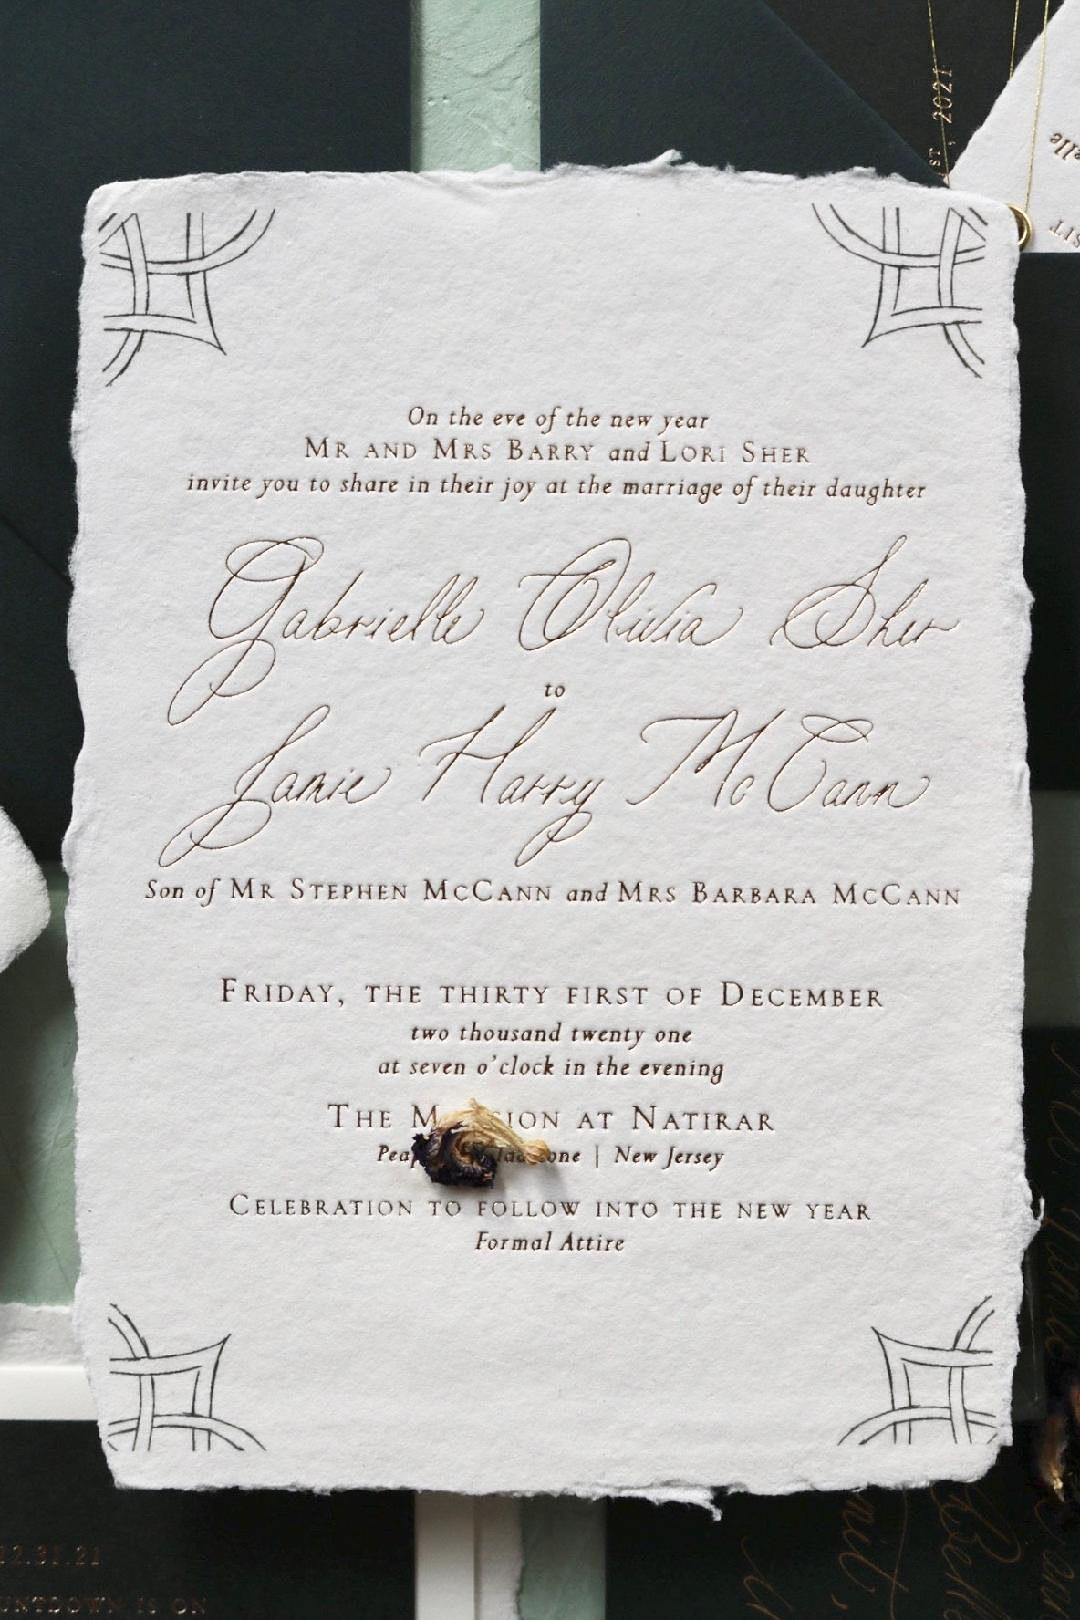 On the eve of the new year
MR AND MRS BARRY and LORI SHER
invite you to share in their joy at the marriage of their daughter
Gabrielle Olivia Sher
to
Jamie Harry McCann
Son of MR STEPHEN MCCANN and MRS BARBARA MCCANN
FRIDAY, THE THIRTY FIRST OF DECEMBER
two thousand twenty one
at seven o'clock in the evening
THE AT NATIRAR
| New Jersey
CELEBRATION TO FOLLOW INTO THE NEW YEAR
Formal Attire
ST, 2021
12.31.21
IS ON